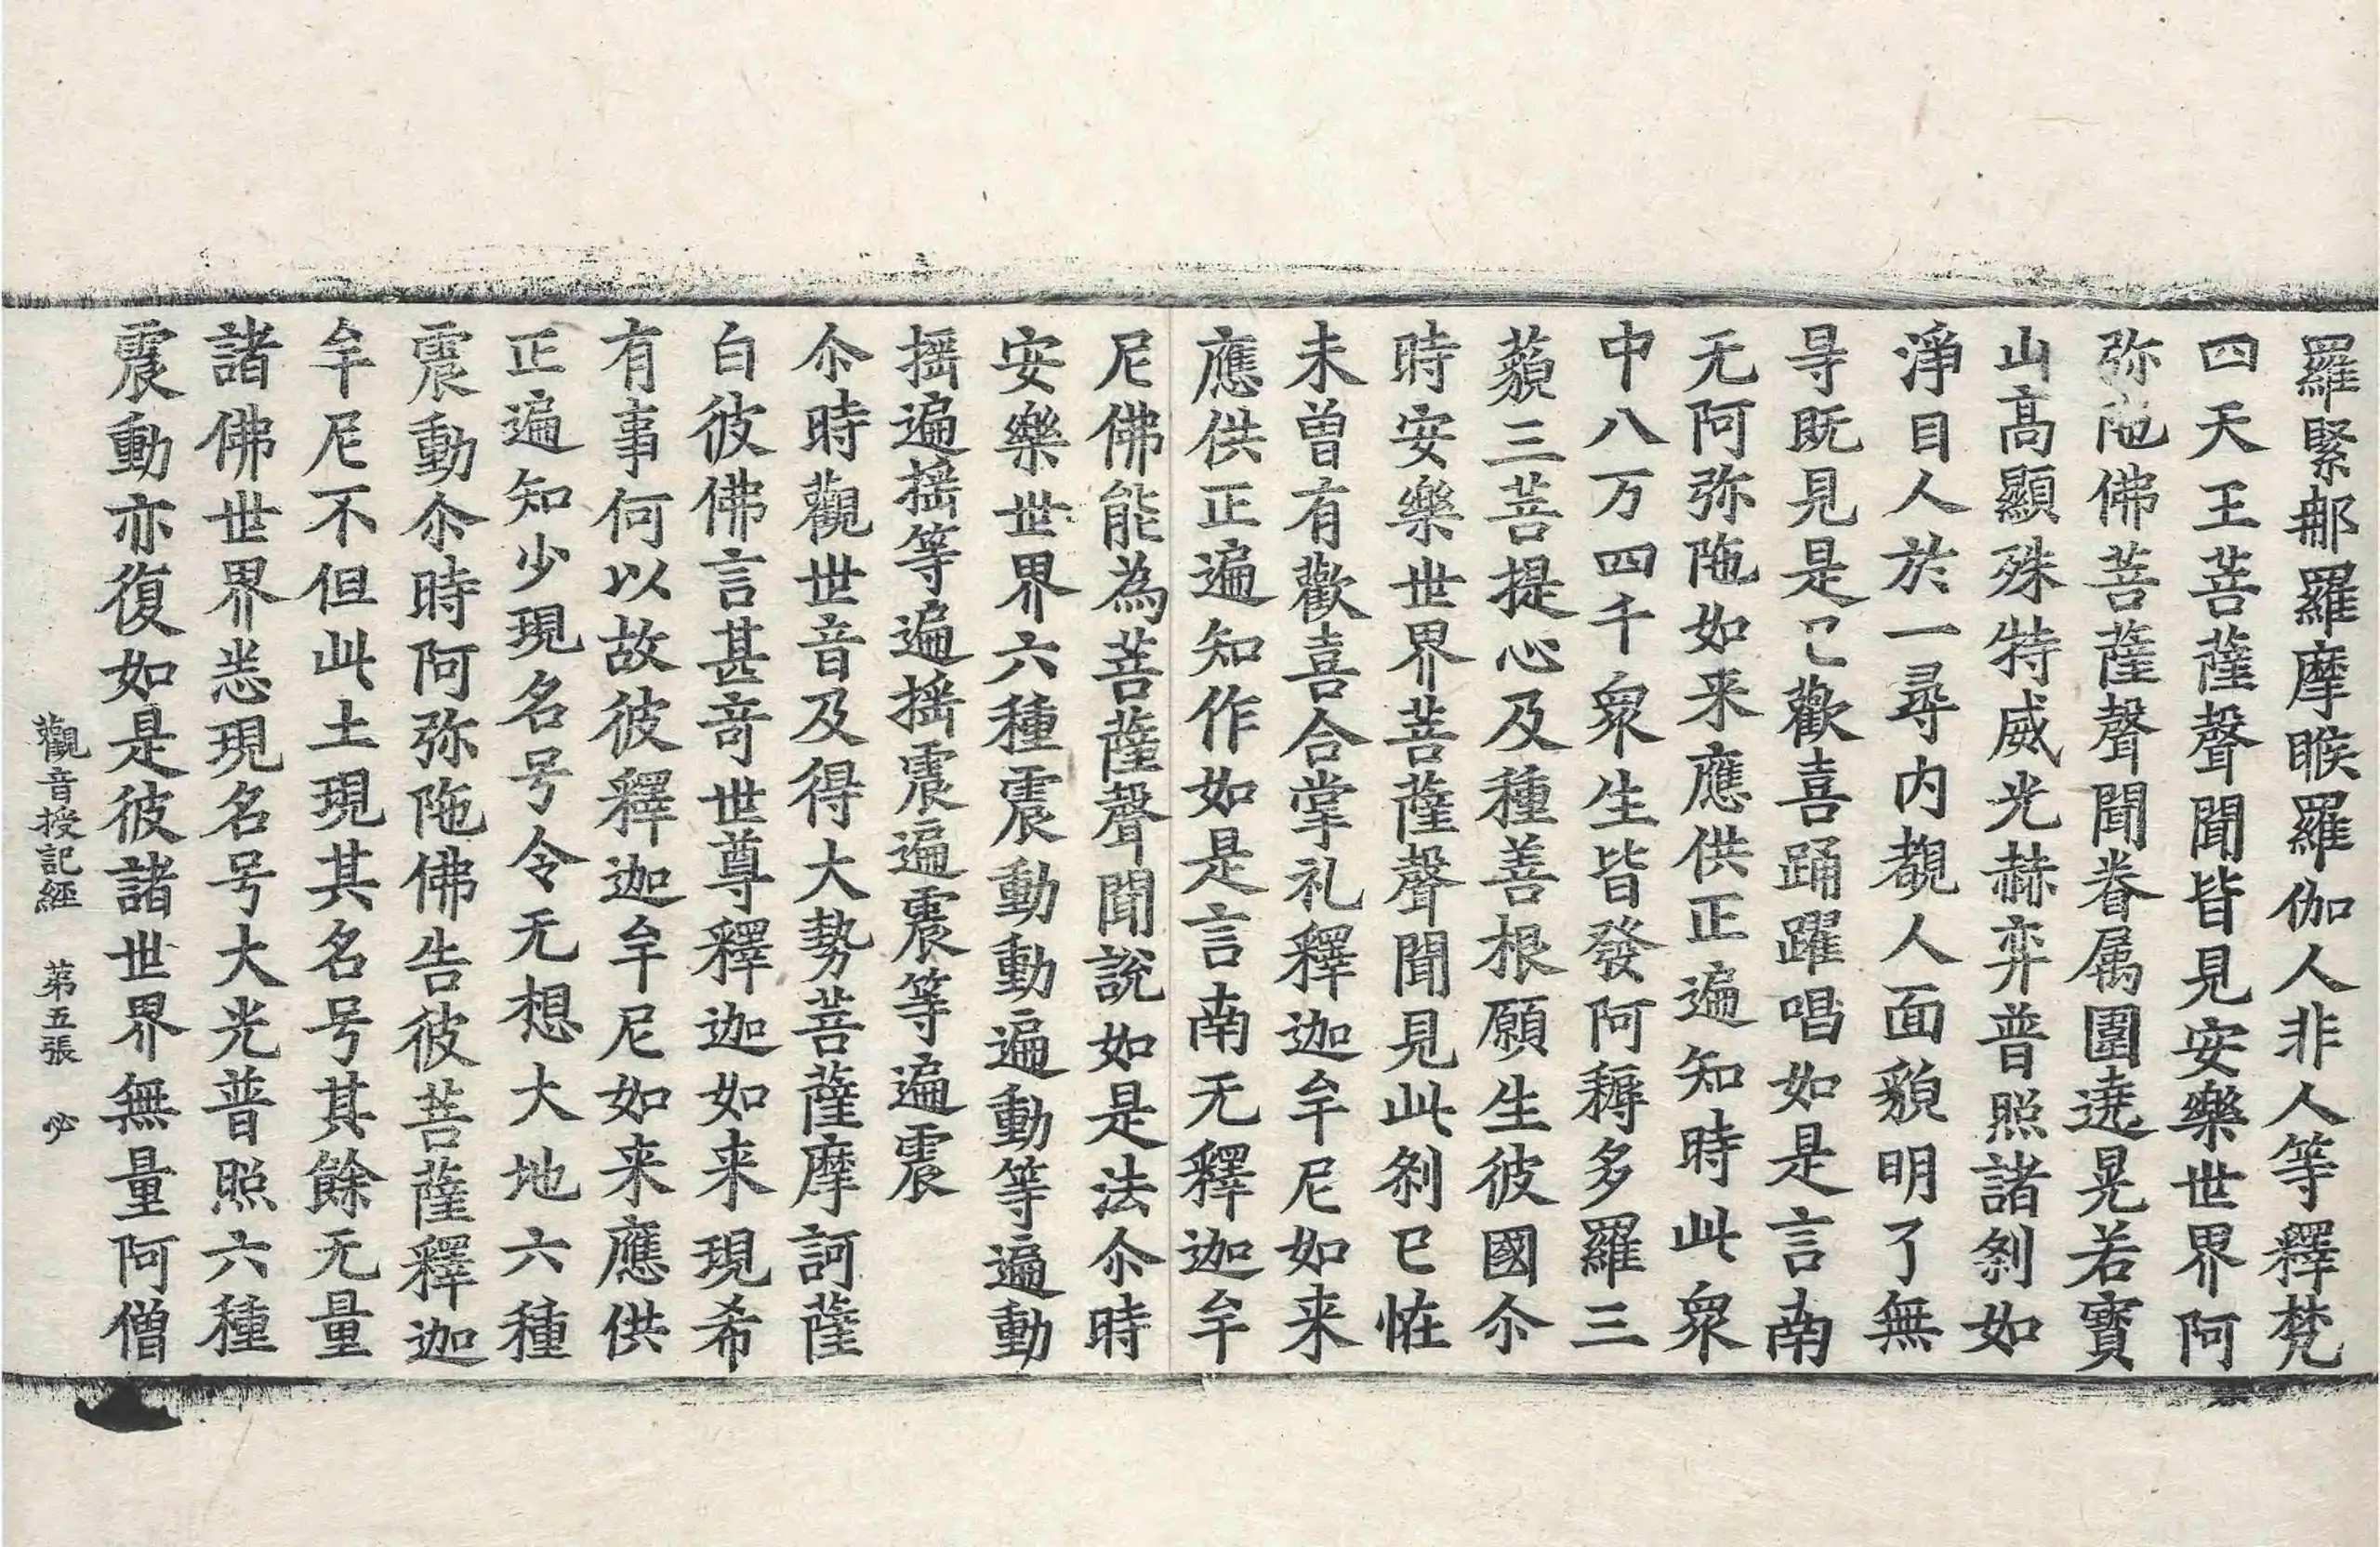 羅緊那羅摩睺羅伽人非人等釋梵
四天王菩薩聲聞皆見安樂世界阿
弥陁佛菩薩聲聞眷属圍遶晃若寶
山高顯殊特威光赫弈普照諸剎如
淨目人於一尋內覩人面貌明了無
㝵既見是已歡喜踊躍唱如是言南
无阿弥陁如来應供正遍知時此衆
中八万四千衆生皆發阿耨多羅三
藐三菩提心及種善根願生彼國尒
時安樂世界菩薩聲聞見此剎已恠
未曾有歡喜合掌礼釋迦牟尼如来
應供正遍知作如是言南无釋迦牟
尼佛能為菩薩聲聞說如是法尒時
安樂世界六種震動動遍動等遍動
搖遍搖等遍搖震遍震等遍震
尒時觀世音及得大勢菩薩摩訶薩
白彼佛言甚竒世尊釋迦如来現希
有事何以故彼釋迦牟尼如来應供
正遍知少現名号令无想大地六種
震動尒時阿弥陁佛告彼菩薩釋迦
牟尼不但此土現其名号其餘无量
諸佛世界悉現名号大光普照六種
震動亦復如是彼諸世界無量阿僧
觀音授記經 第五張 必